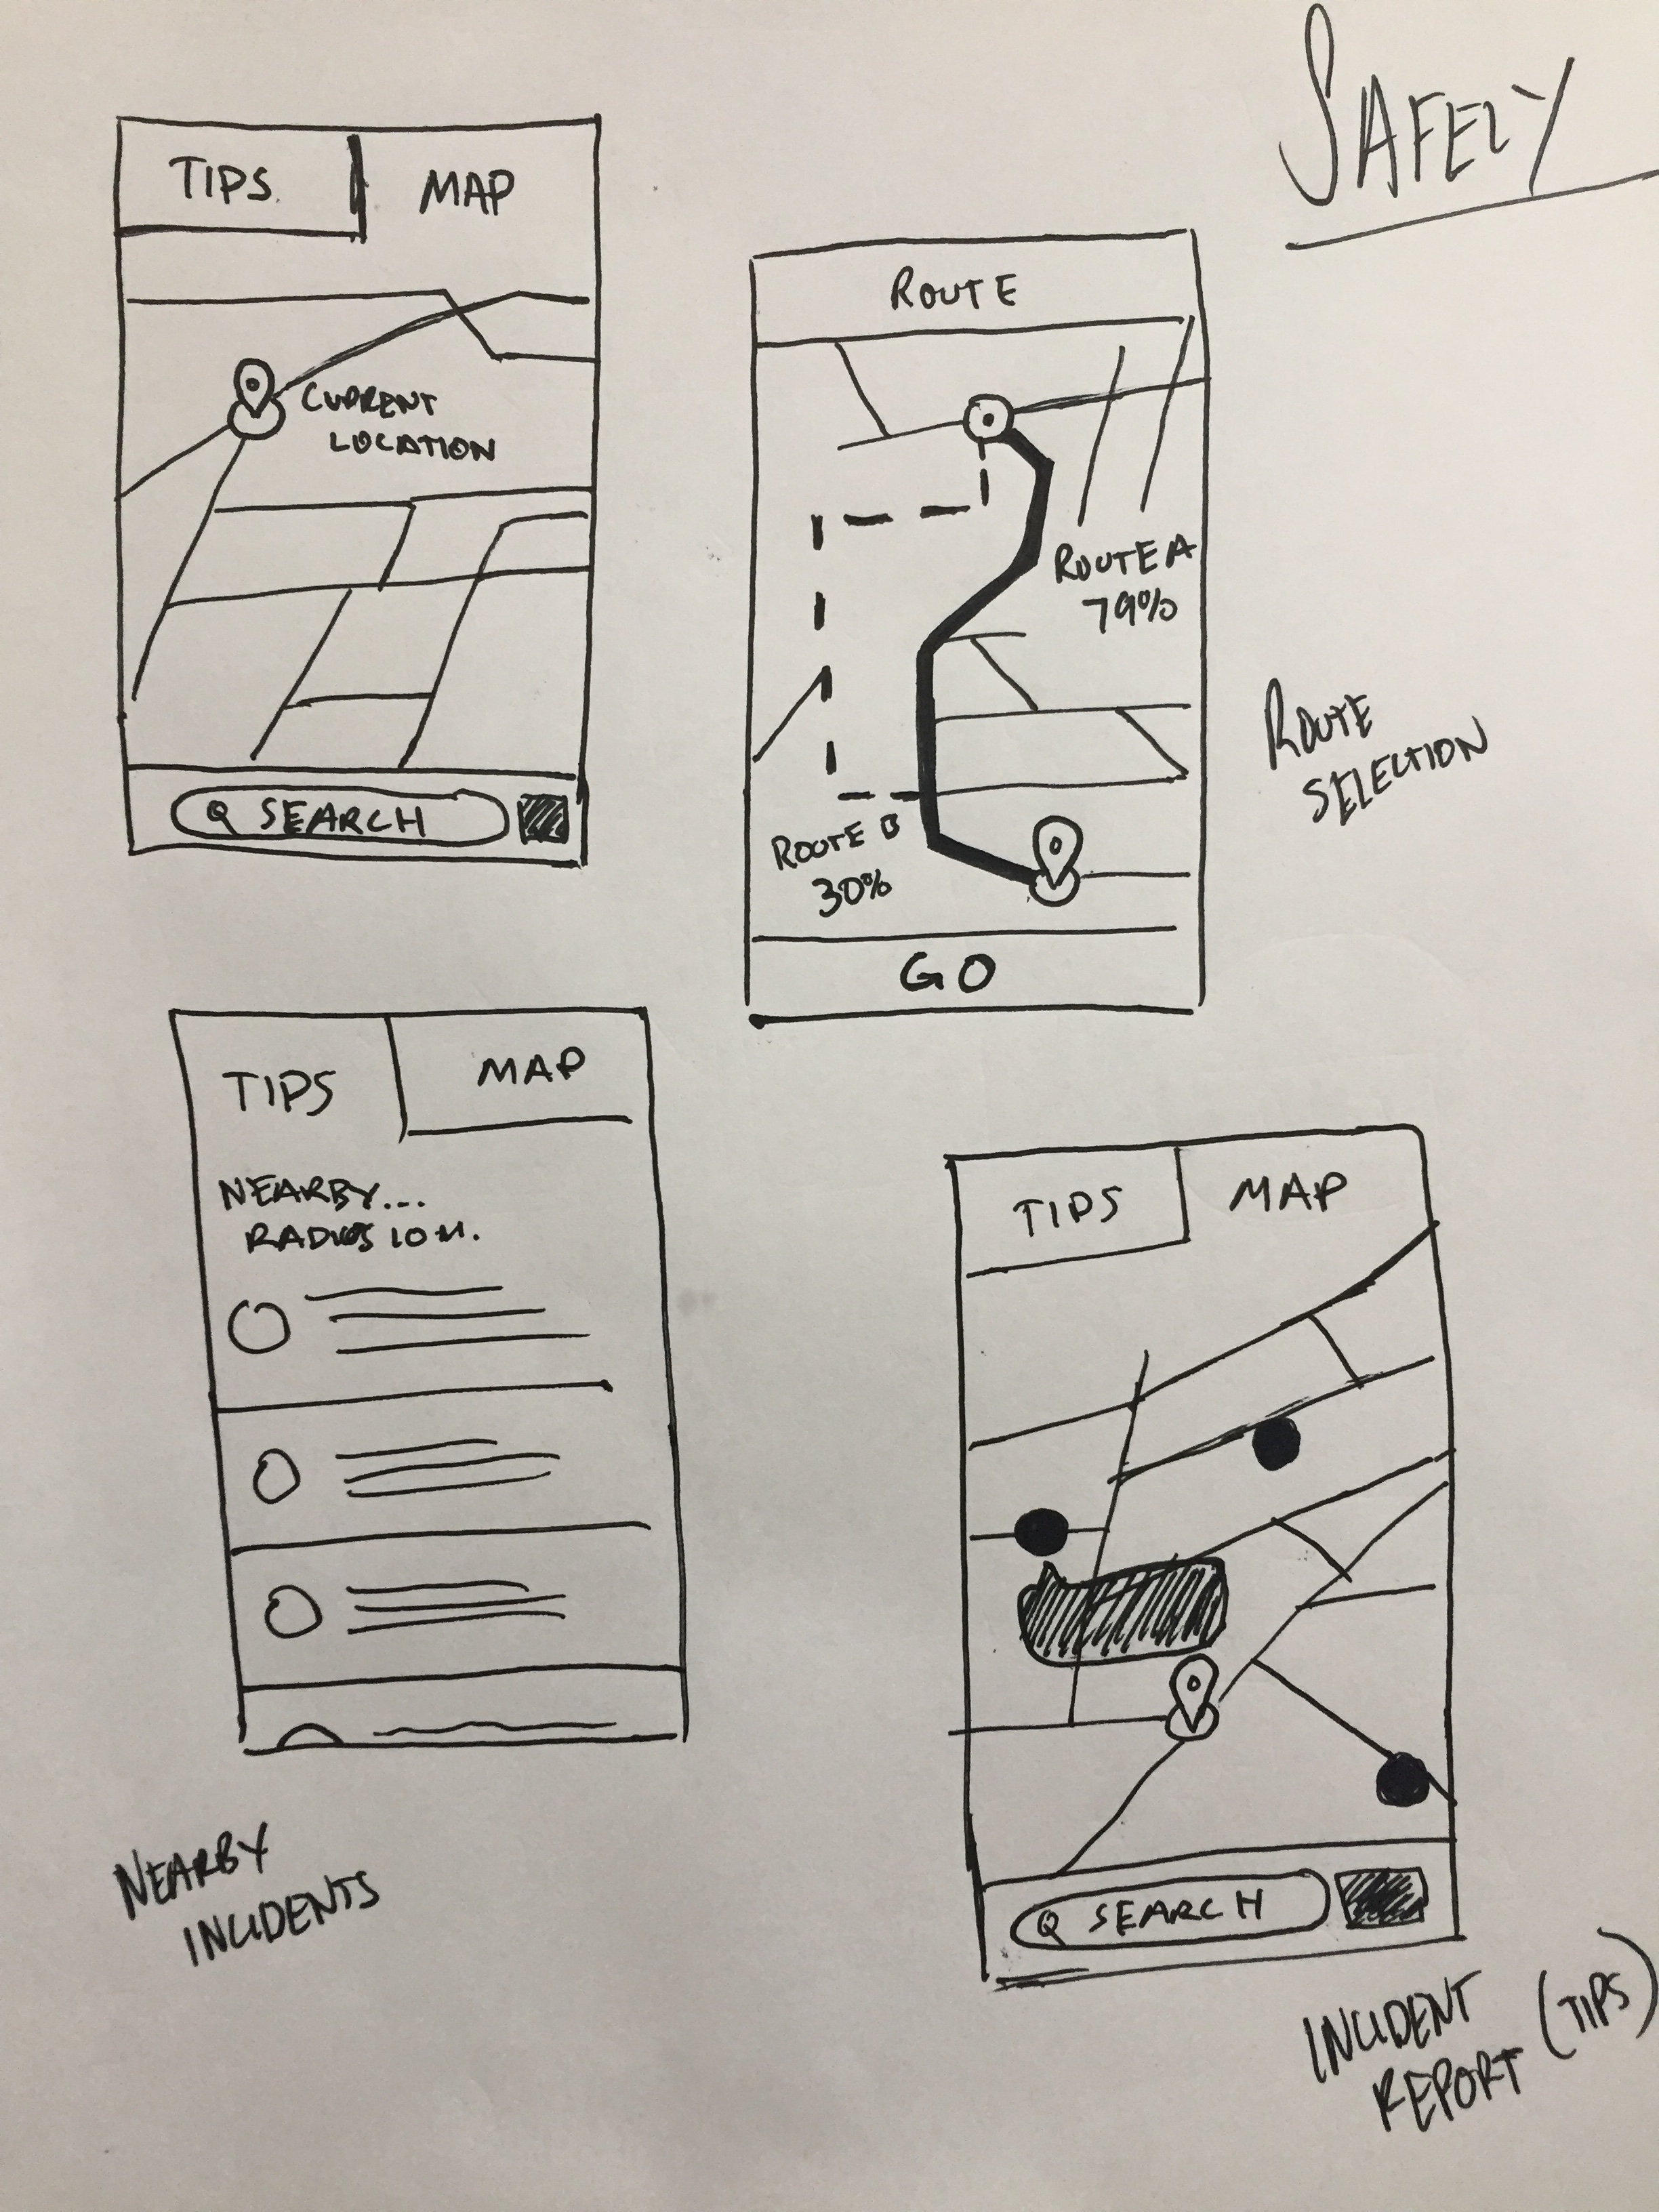 SAFELY
TIPS
MAP
CURRENT
LOCATION
SEARCH
ROUTE
ROUTE A
79%
ROUTE B
30%
GO
ROUTE
SELECTION
TIPS
MAP
NEARBY...
RADIUS 10 M.
NEARBY
INCIDENTS
TIPS
MAP
SEARCH
INCIDENT
REPORT (TIPS)